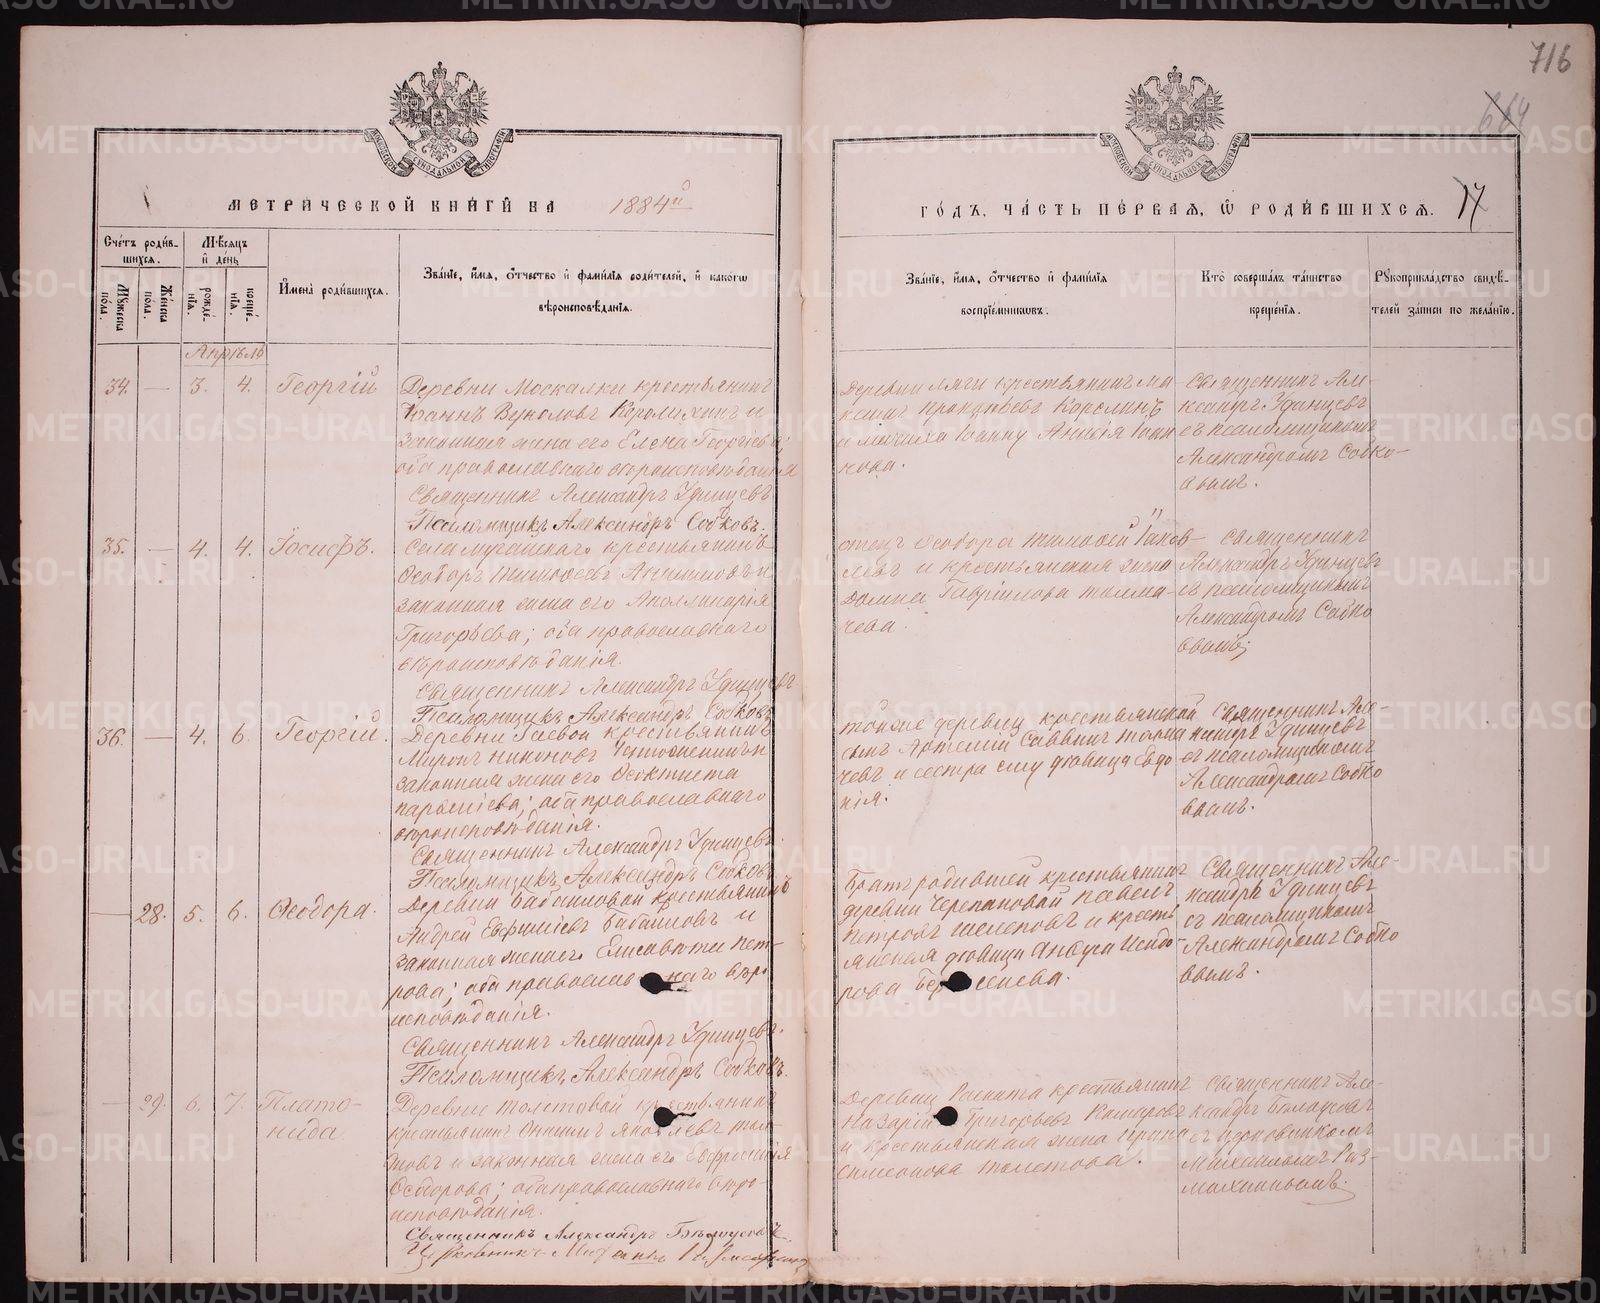 716
664
МОСКОВСКОЙ СИНОДАЛЬНОЙ ТИПОГРАФІИ
МОСКОВСКОЙ СИНОДАЛЬНОЙ ТИПОГРАФІИ
МЕТРИЧЕСКОЙ КНИГИ НА 1884й
ГОДЪ, ЧАСТЬ ПЕРВАЯ, Ѡ РОДИВШИХСЯ. 17
Счетъ родив-
шихся.
Мѣсяцъ
и день
Мужеска
пола.
Женска
пола.
рожде-
нія.
креще-
нія.
Имена родившихся.
Званіе, имя, отчество и фамилія родителей, и какогѡ
вѣроисповѣданія.
Званіе, имя, отчество и фамилія
воспріемникѡвъ.
Кто совершалъ таинство
крещенія.
Рукоприкладство свидѣ-
телей записи по желанію.
Апрѣль
34. — 3. 4. Георгій
Деревни Москалки крестьянинъ
Іоаннъ Вуколовъ и
законная жена его Елена Георгіева;
оба православнаго вѣроисповѣданія
Священникъ Александръ Удинцевъ
Псаломщикъ Александръ Собковъ.
Деревни крестьянинъ Ма-
ксимъ Прокопьевъ
и Іоанну Іоан
нова.
Священникъ Але-
ксандръ Удинцевъ
съ псаломщикомъ
Александромъ Собко-
вымъ.
35. — 4. 4. Іосифъ.
Села крестьянинъ
Ѳеодоръ Тимоѳеевъ и
законная жена его Аполлинарія
Григорьева; оба православнаго
вѣроисповѣданія.
Священникъ Александръ Удинцевъ
Псаломщикъ Александръ Собковъ
отецъ Ѳеодора Тимоѳей Іаков-
левъ и крестьянская жена
Домна Гавріилова Толма-
чева.
Священникъ
Александръ Удинцевъ
съ псаломщикомъ
Александромъ Собко
вымъ;
36. — 4. 6. Георгій.
Деревни крестьянинъ
Миронъ Никоновъ и
законная жена его Ѳеоктиста
; оба православнаго
вѣроисповѣданія.
Священникъ Александръ Удинцевъ.
Псаломщикъ Александръ Собковъ
тойже деревни крестьянской
сынъ Артемій Саввинъ
чевъ и сестра ему дѣвица Евдо
кія.
Священникъ Але-
ксандръ Удинцевъ
съ псаломщикомъ
Александромъ Собко
вымъ.
— 28. 5. 6. Ѳеодора.
Деревни Бабаиловой крестьянинъ
Андрей Евфиміевъ Бабаиловъ и
законная жена его Елисавета Пет-
рова; оба православнаго вѣро
исповѣданія.
Священникъ Александръ Удинцевъ.
Псаломщикъ Александръ Собковъ.
Братъ родившей крестьянинъ
деревни Черепановой Павелъ
Петровъ и кресть
янская дѣвица Анѳуса Исидо-
рова
Священникъ Але-
ксандръ Удинцевъ
съ псаломщикомъ
Александромъ Собко
вымъ.
— 29. 6. 7. Плато-
нида
Деревни Толстовой крестьянинъ
крестьянинъ Онисимъ Яковлевъ Тол-
стовъ и законная жена его Евфросинія
Ѳеодорова; оба православнаго вѣро-
исповѣданія.
Священникъ Александръ Бѣлоусовъ.
Церковникъ Михаилъ
Деревни крестьянинъ
Назарій Григорьевъ
и крестьянская жена Ирина
Симеонова Толстова.
Священникъ Але-
ксандръ Бѣлоусовъ
съ церковникомъ
Михаиломъ Раз-
махнинымъ.
METRIKI.GASO-URAL.RU